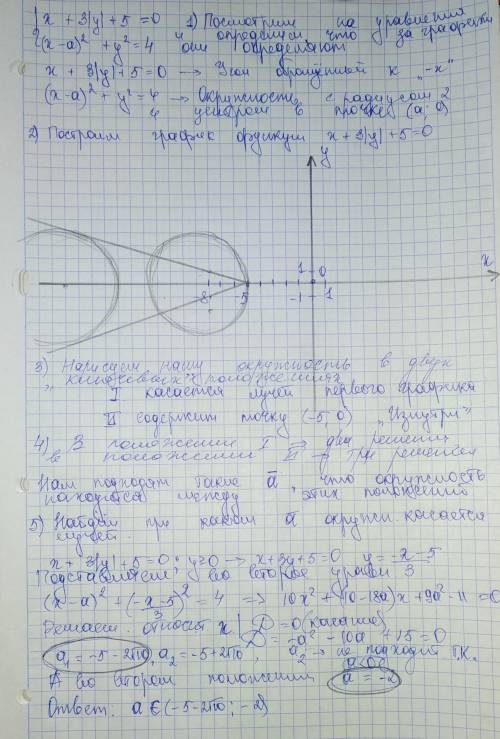 {x + 3|y| + 5 = 0
(x-a)² + y² = 4
1) Посмотрим на уравнения
и определим, что за графики
они определяют
x + 3|y| + 5 = 0 → Угол обращённый к „-x"
(x-a)² + y² = 4 → Окружность с радиусом 2
и центром в точке (a; 0)
2) Построим график функции x + 3|y| + 5 = 0
y
x
-8
-5
1
0
-1
1
3) Нарисуем нашу окружность в двух
положениях
I касается лучей первого графика
II содержит точку (-5, 0) „Изнутри"
4) В положении I → два решения
в положении II → три решения
Нам подходят такие a, что окружность
находится между этих положений
5) Найдём при каком a окружн. касается
лучей.
x + 3|y| + 5 = 0; y≥0 → x + 3y + 5 = 0 y = -x-5
3
Подставляем во второе уравн
(x-a)² + (-x-5)² = 4 => 10x² + (10-18a)x + 9a² - 11 = 0
3
Решаем относит x | D = 0 (касание)
D = -a² - 10a + 15 = 0
a₁ = -5 - 2√10, a₂ = -5 + 2√10, a₂ → не подходит т.к.
А во втором положении a = -2
Ответ: a ∈ (-5-2√10; -2)